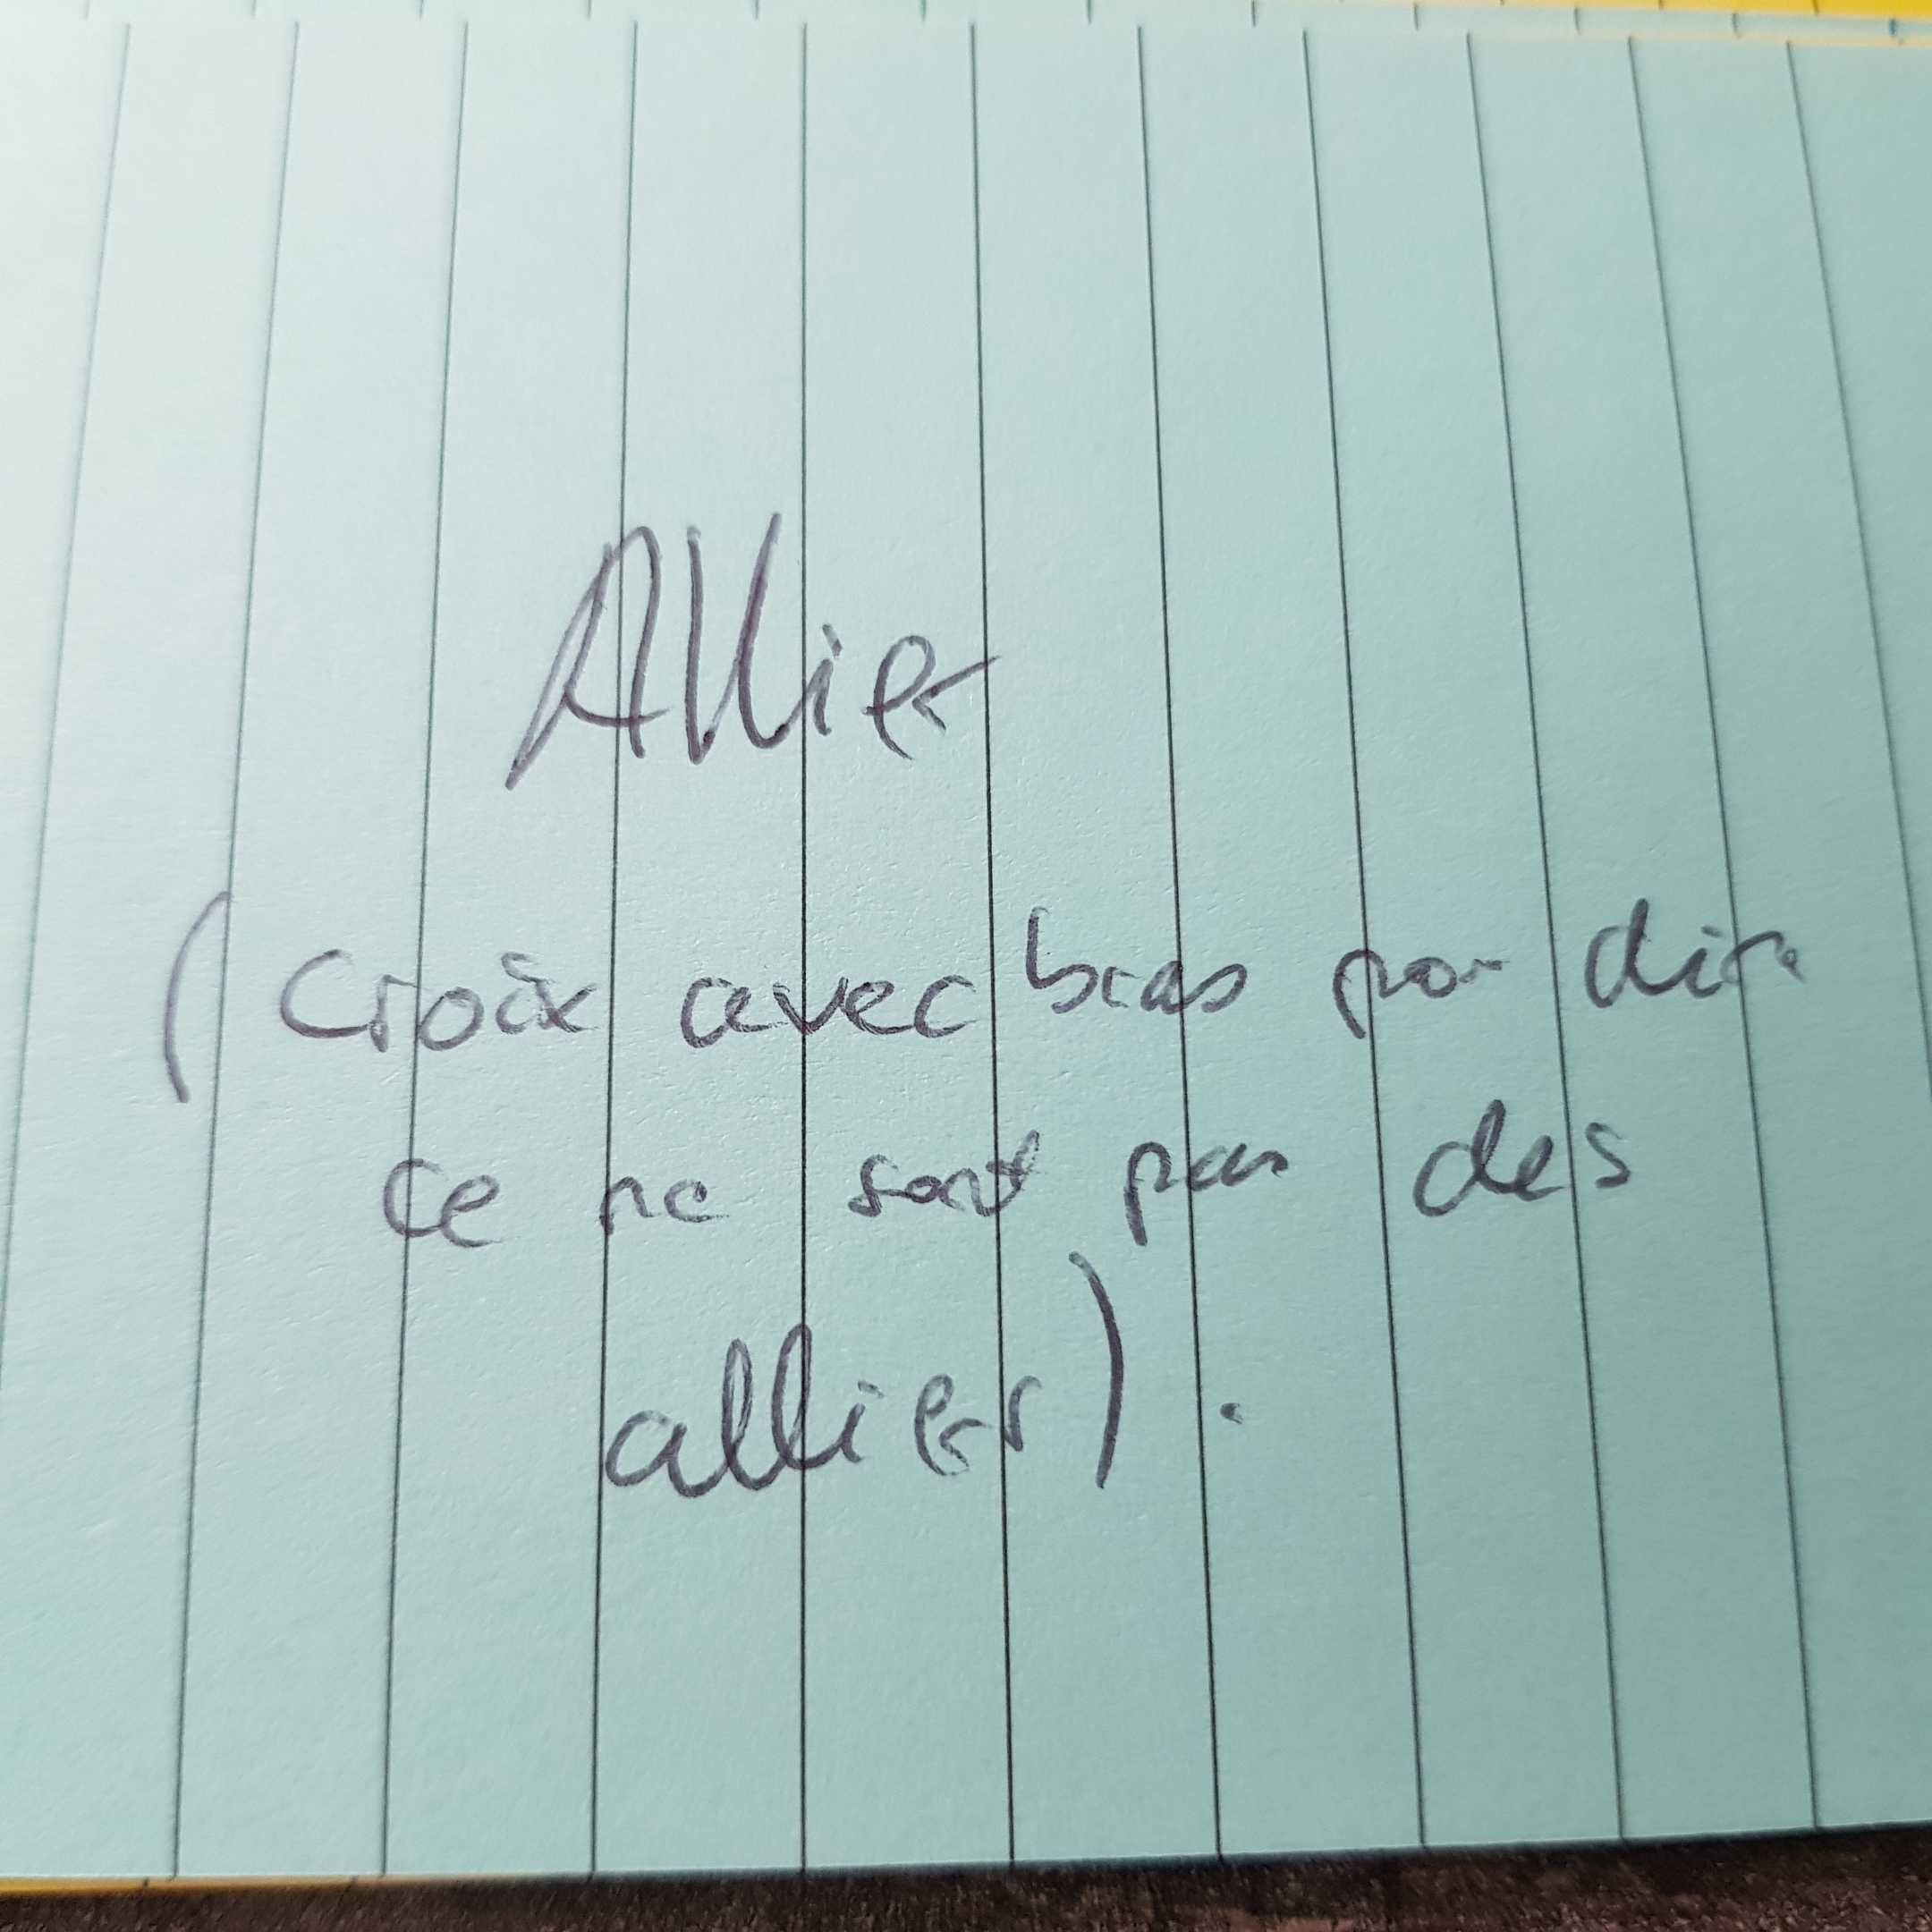 Allier
( Croix avec bras pour dire
ce ne sont pas des
alliers).